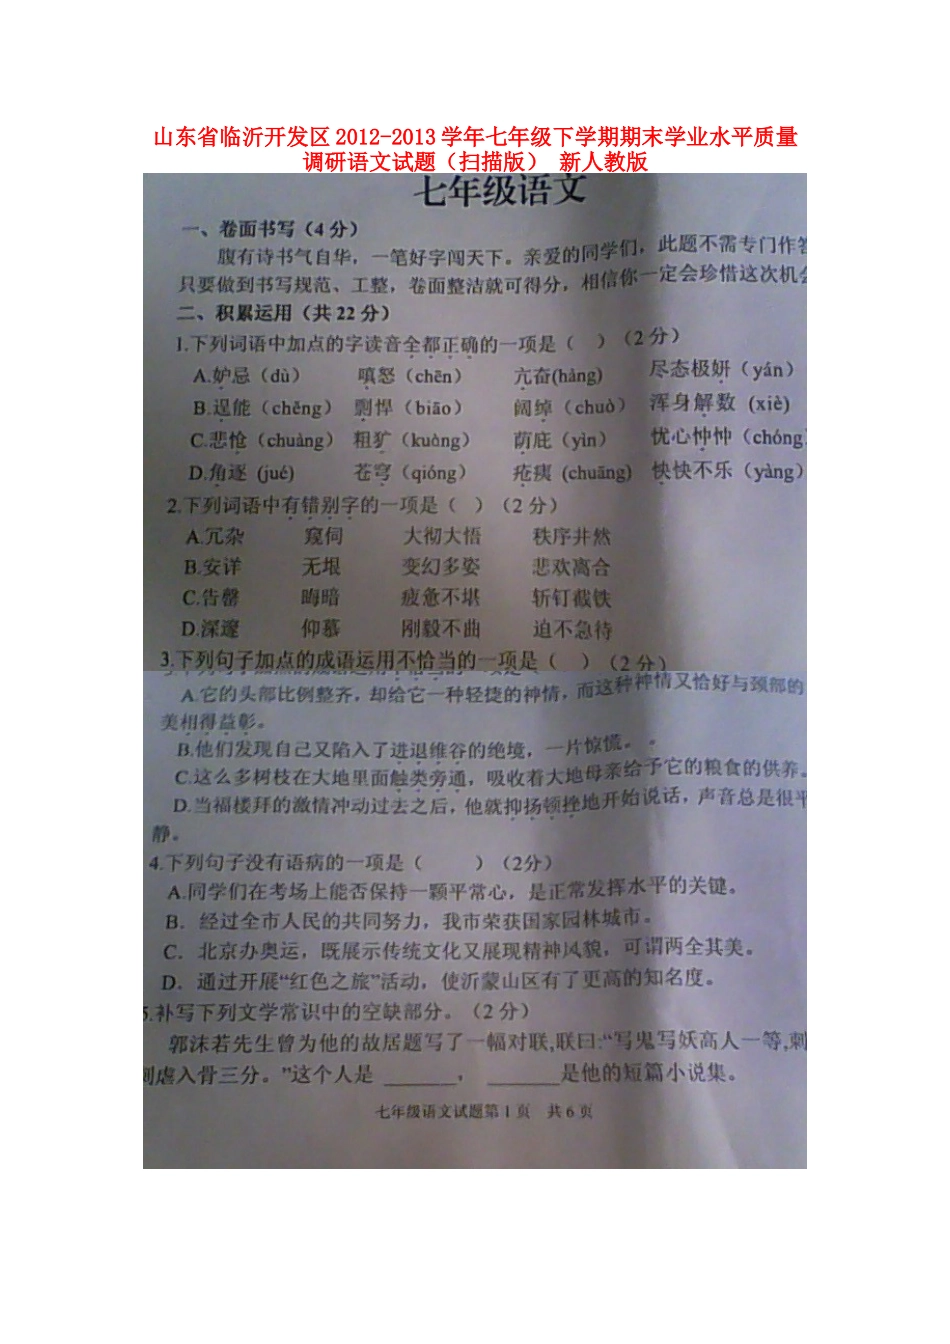 山东省临沂开发区 2012-2013 学年七年级下学期期末学业水平质量
调研语文试题（扫描版） 新人教版
七年级语文
一、卷面书写（4 分）
腹有诗书气自华，一笔好字闯天下。亲爱的同学们，此题不需专门作答
只要做到书写规范、工整，卷面整洁就可得分，相信你一定会珍惜这次机会
二、积累运用（共 22 分）
1.下列词语中加点的字读音全都正确的一项是（ ）（2 分）
A.妒忌（dù） 嗔怒（chēn） 亢奋(háng) 尽态极妍（yán）
B.逞能（chěng） 剽悍（biāo） 阔绰（chuò） 浑身解数 (xiè)
C.悲怆（chuàng） 粗犷（kuàng） 荫庇（yìn） 忧心忡忡（chóng
D.角逐 (jué) 苍穹（qióng） 疮痍 (chuāng) 怏怏不乐（yàng）
2.下列词语中有错别字的一项是（ ）（2 分）
A.冗杂 窥伺 大彻大悟 秩序井然
B.安详 无垠 变幻多姿 悲欢离合
C.告罄 晦暗 疲惫不堪 斩钉截铁
D.深邃 仰慕 刚毅不曲 迫不急待
3.下列句子加点的成语运用不恰当的一项是（ ）（2 分）
A.它的头部比例整齐，却给它一种轻捷的神情，而这种神情又恰好与颈部的
美相得益彰。
B.他们发现自己又陷入了进退维谷的绝境，一片惊慌。
C.这么多树枝在大地里面触类旁通，吸收着大地母亲给予它的粮食的供养。
D.当福楼拜的激情冲动过去之后，他就抑扬顿挫地开始说话，声音总是很平
静。
4.下列句子没有语病的一项是（ ）（2分）
A.同学们在考场上能否保持一颗平常心，是正常发挥水平的关键。
B．经过全市人民的共同努力，我市荣获国家园林城市。
C．北京办奥运，既展示传统文化又展现精神风貌，可谓两全其美。
D．通过开展“红色之旅”活动，使沂蒙山区有了更高的知名度。
5.补写下列文学常识中的空缺部分。（2 分）
郭沫若先生曾为他的故居题写了一幅对联,联曰:“写鬼写妖高人一等,刺
刺虐入骨三分。”这个人是 _______， _______是他的短篇小说集。
七年级语文试题第 1 页 共 6 页